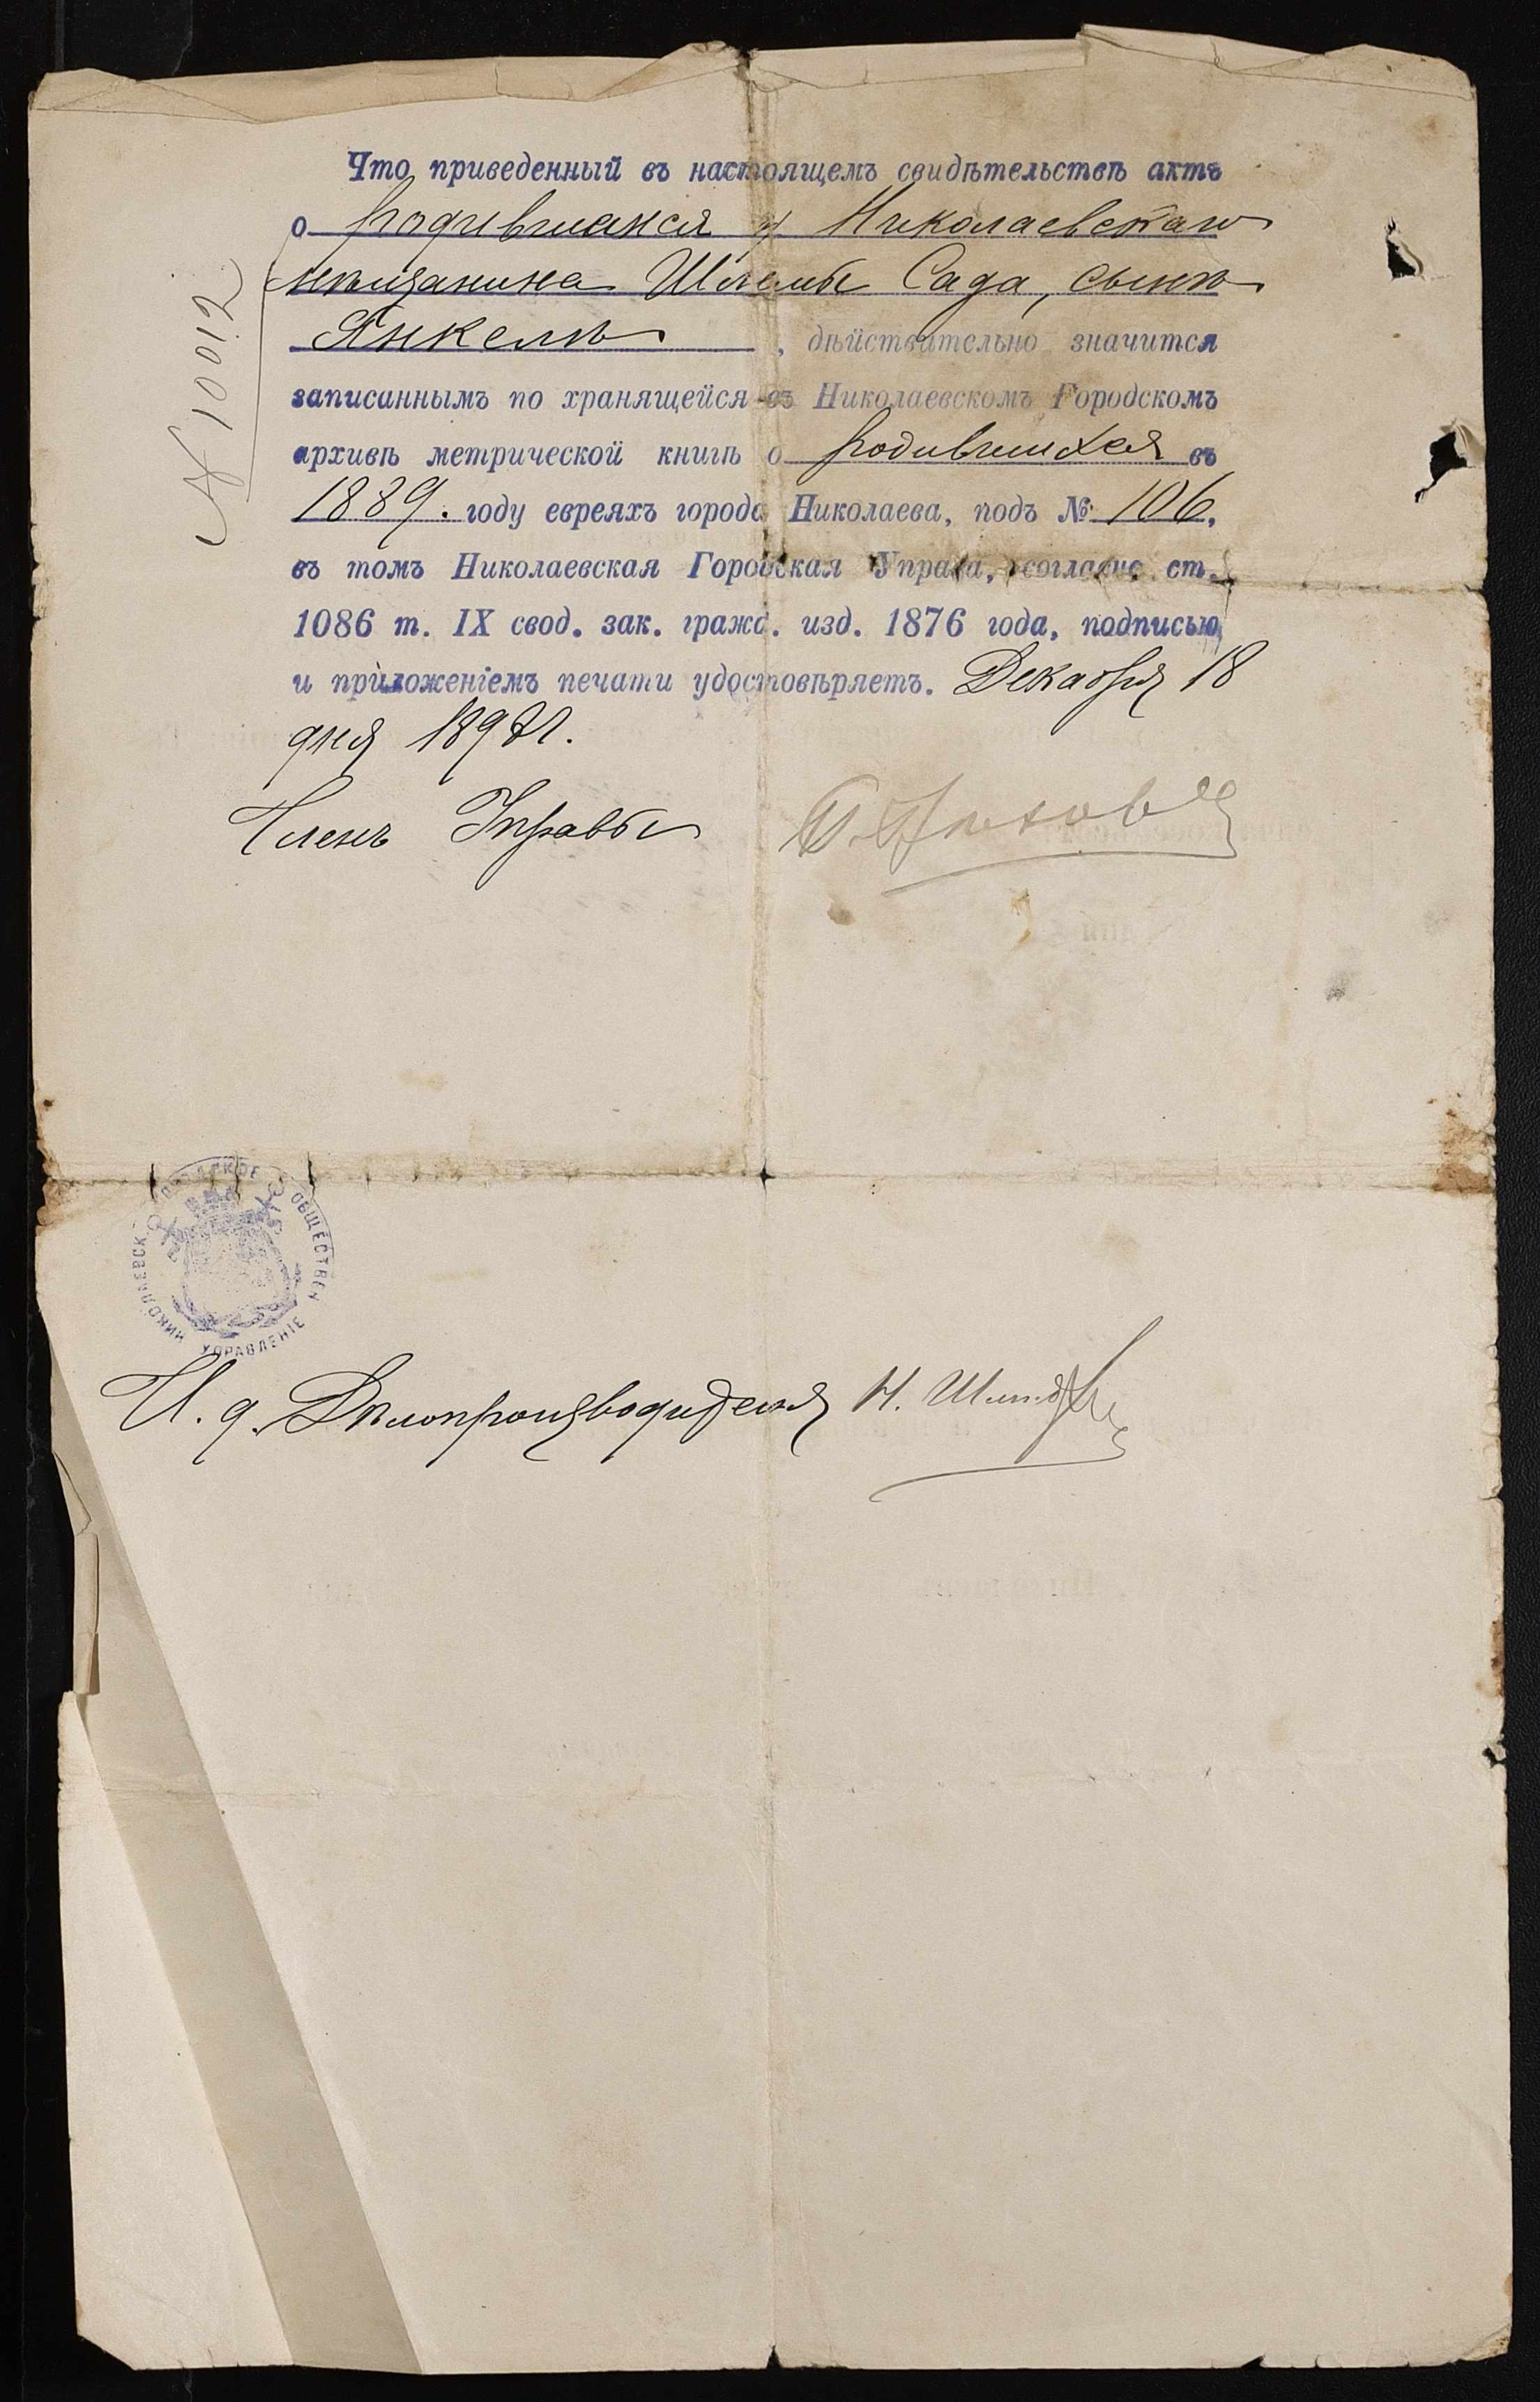 Что приведенный въ настоящемъ свидѣтельствѣ актъ
о родившемся у Николаевскаго
мѣщанина Шлемы Сада, сынѣ
Янкелѣ, дѣйствительно значится
записаннымъ по хранящейся въ Николаевскомъ Городскомъ
архивѣ метрической книгѣ о родившихся въ
1889. году евреяхъ города Николаева, подъ № 106,
въ томъ Николаевская Городская Управа, согласно ст.
1086 т. IX свод. зак. гражд. изд. 1876 года, подписью
и приложеніемъ печати удостовѣряетъ. Декабря 18
дня г.
Членъ Управы
№ 10012
НИКОЛАЕВСК ГОРОДСКОЕ ОБЩЕСТВЕН УПРАВЛЕНІЕ
И. д. Дѣлопроизводителя Н.